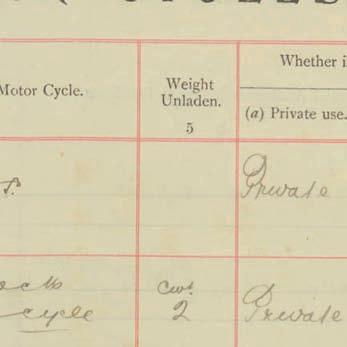 CYCLES
Motor Cycle.
Weight
Unladen.
5
Whether i
(a) Private use.
Private
Cwt
cycle
2
Private